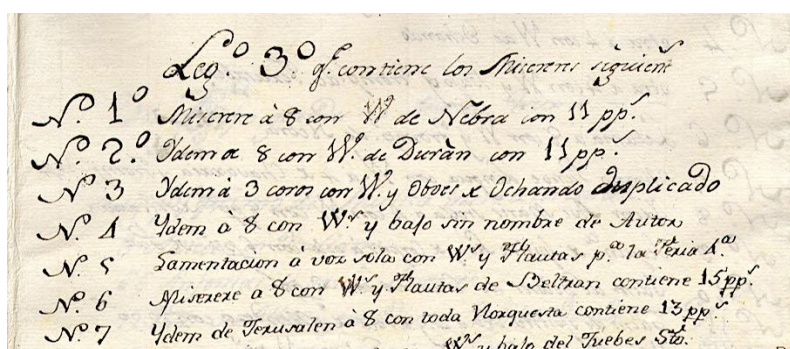 Leg.º 3º q.e contiene los Misereres siguient.s
N.º 1º Miserere à 8 con W de Nebra con 11 pp.s
N.º 2.º Ydem a 8 con W.s de Duràn con 11 pp.s
N.º 3 Ydem à 3 coros con W.s y Oboes x Ochando duplicado
N.º 4 Ydem à 8 con W.s y bajo sin nombre de Autor
N.º 5 Lamentacion à voz sola con W.s y Flautas p.a la Feria 4.a
N.º 6 Miserere a 8 con W.s y Flautas de Beltran contiene 15 pp.s
N.º 7 Ydem de Jerusalen à 8 con toda Norquesta contiene 13 pp.s
W.s y bajo del Juebes Sto.